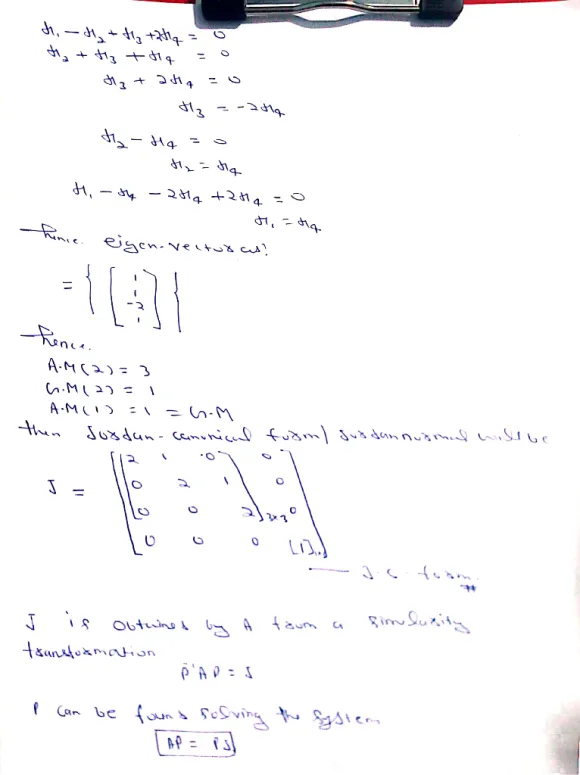 x₁ - x₂ + x₃ + 2x₄ = 0
x₂ + x₃ + x₄ = 0
x₃ + 2x₄ = 0
x₃ = -2x₄
x₂ - x₄ = 0
x₂ = x₄
x₁ - x₄ - 2x₄ + 2x₄ = 0
x₁ = x₄
hence eigen-vectors as:
= { [ 1
1
-2
1 ] }
Hence.
A.M(2) = 3
G.M(2) = 1
A.M(1) = 1 = G.M
then Jordan-canonical form/ Jordan normal will be
2 1 0 0
J = 0 2 1 0
0 0 2 3x3 0
0 0 0 [1]
J.C. form
J is obtained by A from a similarity
transformation
P⁻¹AP = J
P can be found solving the system
AP = PJ